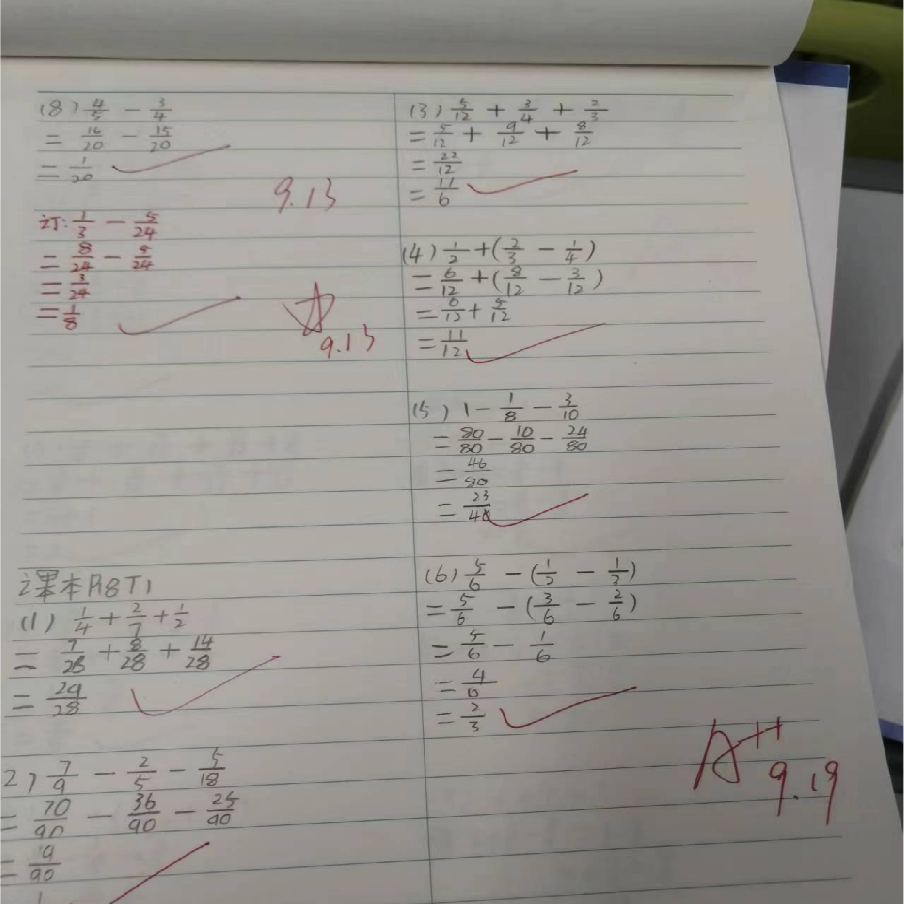 (8) 4/5 - 3/4
= 16/20 - 15/20
= 1/20
9.13
订: 1/3 - 5/24
= 8/24 - 5/24
= 3/24
= 1/8
9.13
课本P18T1
(1) 1/4 + 2/7 + 1/2
= 7/28 + 8/28 + 14/28
= 29/28
2) 7/9 - 2/5 - 5/18
= 70/90 - 36/90 - 25/90
= 9/90
(3) 5/12 + 3/4 + 2/3
= 5/12 + 9/12 + 8/12
= 22/12
= 11/6
(4) 1/2 + (2/3 - 1/4)
= 6/12 + (8/12 - 3/12)
= 6/12 + 5/12
= 11/12
(5) 1 - 1/8 - 3/10
= 80/80 - 10/80 - 24/80
= 46/80
= 23/40
(6) 5/6 - (1/2 - 1/3)
= 5/6 - (3/6 - 2/6)
= 5/6 - 1/6
= 4/6
= 2/3
A++
9.19